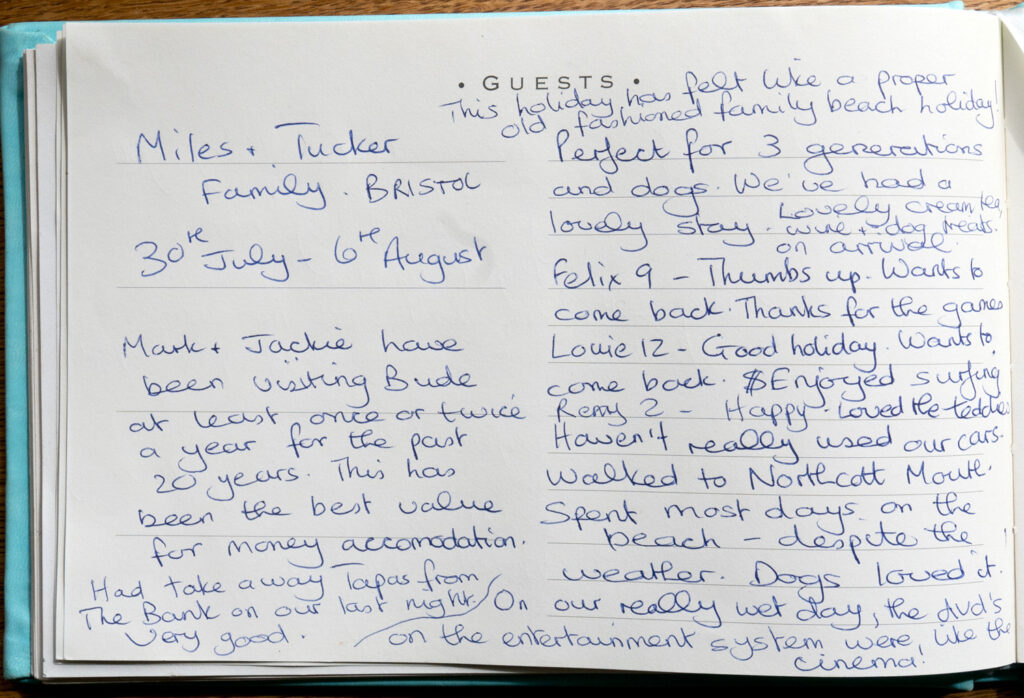 • GUESTS •
Miles + Tucker
Family. BRISTOL
30th July - 6th August
Mark + Jackie have
been visiting Bude
at least once or twice
a year for the past
20 years. This has
been the best value
for money accomodation.
Had take away Tapas from
The Bank on our last night.
Very good.
This holiday has felt like a proper
old fashioned family beach holiday!
Perfect for 3 generations
and dogs. We've had a
lovely stay. Lovely cream tea,
wine + dog treats.
on arrival.
Felix 9 - Thumbs up. Wants to
come back. Thanks for the games
Louie 12 - Good holiday. Wants to
come back. Enjoyed surfing
Remy 2 - Happy. Loved the teddies
Haven't really used our cars.
Walked to Northcott Mouth.
Spent most days on the
beach - despite the
weather. Dogs loved it.
On our really wet day, the dvd's
on the entertainment system were, like the
cinema!